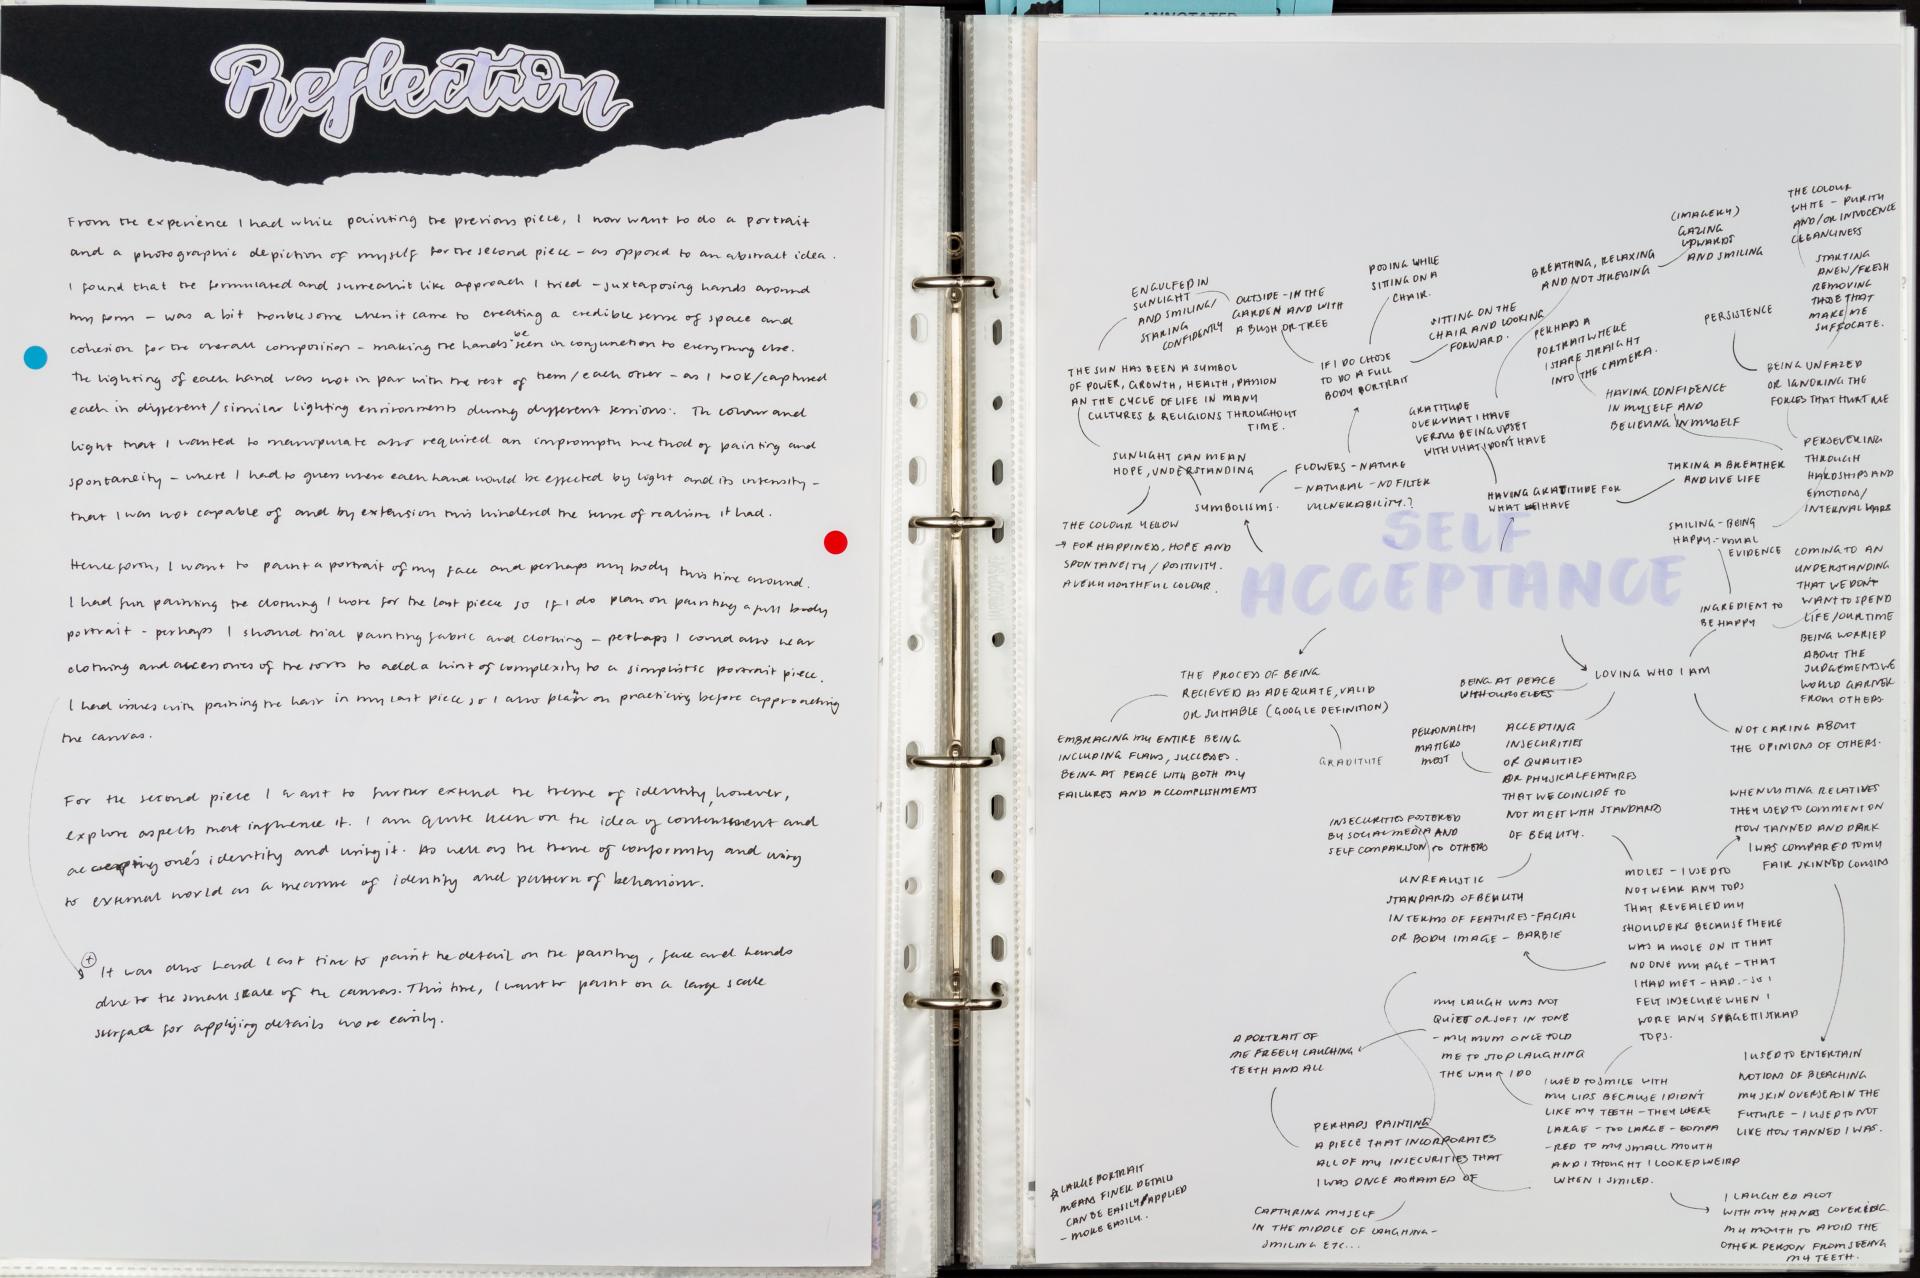 ANNOTATED
Reflection
From the experience I had while painting the previous piece, I now want to do a portrait
and a photographic depiction of myself for the second piece – as opposed to an abstract idea.
I found that the formulated and surrealist like approach I tried – juxtaposing hands around
my form – was a bit troublesome when it came to creating a credible sense of space and
cohesion for the overall composition – making the hands be seen in conjunction to everything else.
The lighting of each hand was not in par with the rest of them/each other – as I took/captured
each in different/similar lighting environments during different sessions. The colour and
light that I wanted to manipulate also required an impromptu method of painting and
spontaneity – where I had to guess where each hand would be effected by light and its intensity –
that I was not capable of and by extension this hindered the sense of realism it had.
Henceforth, I want to paint a portrait of my face and perhaps my body this time around.
I had fun painting the clothing I wore for the last piece so if I do plan on painting a full body
portrait – perhaps I should trial painting fabric and clothing – perhaps I could also wear
clothing and accessories of the sorts to add a hint of complexity to a simplistic portrait piece.
I had issues with painting the hair in my last piece so I also plan on practicing before approaching
the canvas.
For the second piece I want to further extend the theme of identity, however,
explore aspects that influence it. I am quite keen on the idea of contentment and
accepting one's identity and using it. As well as the theme of conformity and using
to external world as a measure of identity and pattern of behaviour.
+ It was also hard last time to paint the detail on the painting, face and hands
due to the small scale of the canvas. This time, I want to paint on a large scale
surface for applying details more easily.
SELF
ACCEPTANCE
ENGULFED IN
SUNLIGHT
AND SMILING/
STARING
CONFIDENTLY
OUTSIDE - IN THE
GARDEN AND WITH
A BUSH OR TREE
POSING WHILE
SITTING ON A
CHAIR.
SITTING ON THE
CHAIR AND LOOKING
FORWARD.
IF I DO CHOSE
TO DO A FULL
BODY PORTRAIT
BREATHING, RELAXING
AND NOT STRESSING
(IMAGERY)
GAZING
UPWARDS
AND SMILING
THE COLOUR
WHITE - PURITY
AND/OR INNOCENCE
CLEANLINESS
STARTING
ANEW/FRESH
REMOVING
THOSE THAT
MAKE ME
SUFFOCATE.
PERSISTENCE
PERHAPS A
PORTRAIT WHERE
I STARE STRAIGHT
INTO THE CAMERA.
BEING UNFAZED
OR IGNORING THE
FORCES THAT HURT ME
HAVING CONFIDENCE
IN MYSELF AND
BELIEVING IN MYSELF
THE SUN HAS BEEN A SYMBOL
OF POWER, GROWTH, HEALTH, PASSION
AN THE CYCLE OF LIFE IN MANY
CULTURES & RELIGIONS THROUGHOUT
TIME.
GRATITUDE
OVER WHAT I HAVE
VERSUS BEING UPSET
WITH WHAT I DON'T HAVE
SUNLIGHT CAN MEAN
HOPE, UNDERSTANDING
FLOWERS - NATURE
- NATURAL - NO FILTER
VULNERABILITY?
SYMBOLISMS.
HAVING GRATITUDE FOR
WHAT WE HAVE
TAKING A BREATHER
AND LIVE LIFE
PERSEVERING
THROUGH
HARDSHIPS AND
EMOTIONS/
INTERNAL WARS
THE COLOUR YELLOW
→ FOR HAPPINESS, HOPE AND
SPONTANEITY / POSITIVITY.
A VERY YOUTHFUL COLOUR.
SMILING - BEING
HAPPY - VISUAL
EVIDENCE
COMING TO AN
UNDERSTANDING
THAT WE DON'T
WANT TO SPEND
LIFE/OUR TIME
BEING WORRIED
ABOUT THE
JUDGEMENTS WE
WOULD GARNER
FROM OTHERS.
INGREDIENT TO
BE HAPPY
LOVING WHO I AM
BEING AT PEACE
WITH OURSELVES
THE PROCESS OF BEING
RECIEVED AS ADEQUATE, VALID
OR SUITABLE (GOOGLE DEFINITION)
EMBRACING MY ENTIRE BEING
INCLUDING FLAWS, SUCCESSES.
BEING AT PEACE WITH BOTH MY
FAILURES AND ACCOMPLISHMENTS
GRADITUTE
PERSONALITY
MATTERS
MOST
ACCEPTING
INSECURITIES
OR QUALITIES
OR PHYSICAL FEATURES
THAT WE COINCIDE TO
NOT MEET WITH STANDARDS
OF BEAUTY.
NOT CARING ABOUT
THE OPINIONS OF OTHERS.
WHEN VISITING RELATIVES
THEY USED TO COMMENT ON
HOW TANNED AND DARK
I WAS COMPARED TO MY
FAIR SKINNED COUSINS
INSECURITIES FOSTERED
BY SOCIAL MEDIA AND
SELF COMPARISON TO OTHERS
UNREALISTIC
STANDARDS OF BEAUTY
IN TERMS OF FEATURES - FACIAL
OR BODY IMAGE - BARBIE
MOLES - I USED TO
NOT WEAR ANY TOPS
THAT REVEALED MY
SHOULDERS BECAUSE THERE
WAS A MOLE ON IT THAT
NO ONE MY AGE - THAT
I HAD MET - HAD. - SO I
FELT INSECURE WHEN I
WORE ANY SPAGETTI STRAP
TOPS.
MY LAUGH WAS NOT
QUIET OR SOFT IN TONE
- MY MUM ONCE TOLD
ME TO STOP LAUGHING
THE WAY I DO
A PORTRAIT OF
ME FREELY LAUGHING
TEETH AND ALL
I USED TO ENTERTAIN
NOTIONS OF BLEACHING
MY SKIN OVERSEAS IN THE
FUTURE - I USED TO NOT
LIKE HOW TANNED I WAS.
I USED TO SMILE WITH
MY LIPS BECAUSE I DIDN'T
LIKE MY TEETH - THEY WERE
LARGE - TOO LARGE - COMPA
-RED TO MY SMALL MOUTH
AND I THOUGHT I LOOKED WEIRD
WHEN I SMILED.
PERHAPS PAINTING
A PIECE THAT INCORPORATES
ALL OF MY INSECURITIES THAT
I WAS ONCE ASHAMED OF
CAPTURING MYSELF
IN THE MIDDLE OF LAUGHING -
SMILING ETC...
☆ LARGE PORTRAIT
MEANS FINER DETAILS
CAN BE EASILY APPLIED
- MORE EASILY..
I LAUGHED ALOT
WITH MY HANDS COVERING
MY MOUTH TO AVOID THE
OTHER PERSON FROM SEEING
MY TEETH.